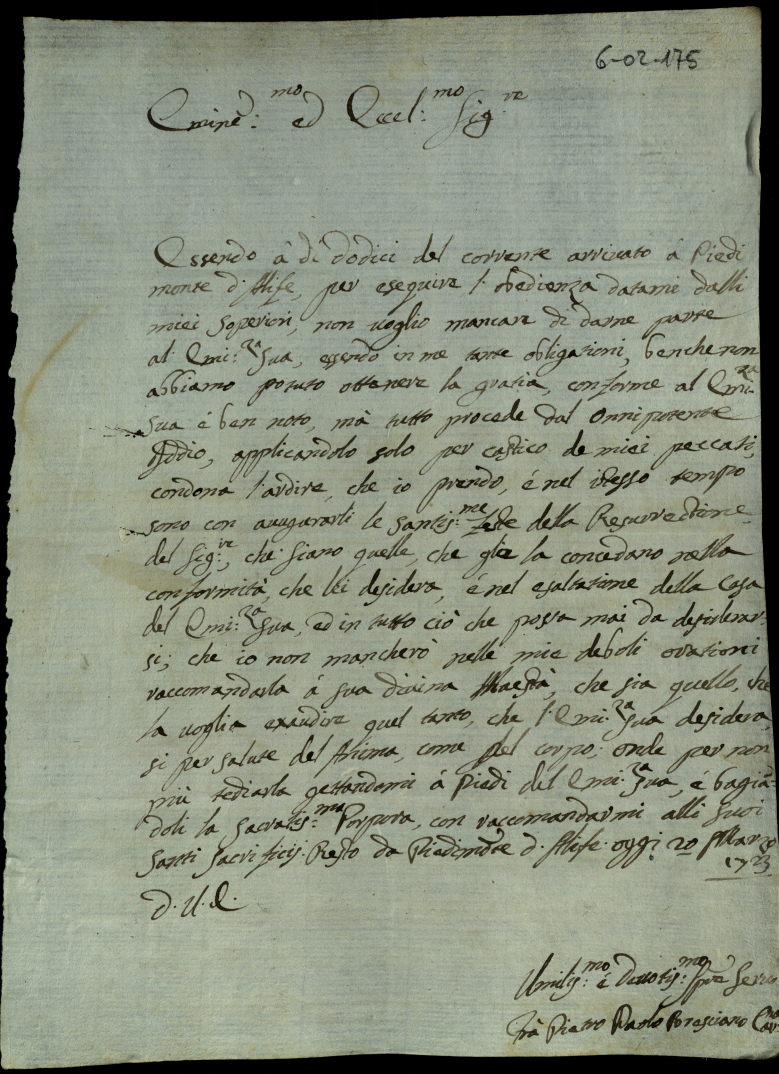 6-02-175
Emine:mo ed Eccel:mo Sig:re
Essendo à di dodici del corrente arrivato á Piedi
monte d'Alife, per eseguire l'obedienza datami dalli
miei Soperiori, non voglio mancare di darne parte
al Emi:za Sua, essendo in me tante obligationi, benche non
abbiamo potuto ottenere la gratia, conforme al Emi:za
Sua é ben noto, mà tutto procede dal Onnipotente
Iddio, applicandolo solo per castico de miei peccati,
condona l'ardire, che io prendo, é nel istesso tempo
sono con augurarli le Santis:me feste della Resurrectione
del Sig:re, che siano quelle, che glie la concedano nella
conformità, che lei desidera, é nel esaltatione della Casa
del Emi:za Sua, ed in tutto ciò che possa mai da desiderar-
si; che io non mancherò nelle mie deboli orationi
raccomandarla á sua divina Maestà, che sia quello, che
la voglia exaudire quel tanto, che l'Emi:za Sua desidera,
si per salute del Anima, come del corpo; onde per non
più tediarla gettandomi á Piedi del Emi:za Sua, é bagian
doli la Sacratis:ma Porpora, con raccomandarmi alli suoi
Santi Sacrificij. Resto da Piedimonte d'Alife oggi 20 Marzo
1723
D. V. E.
Umilis:mo é Devotis:mo Serv
Frà Pietro Paolo